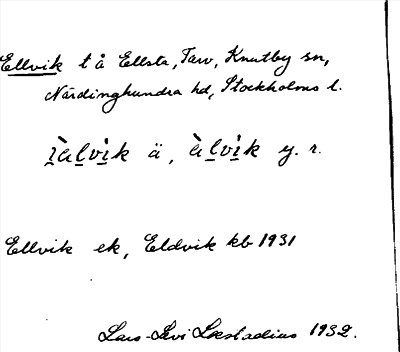 Ellvik t å Ellsta, Tarv, Knutby sn,
Närdinghundra hd, Stockholms l.
i̯àl̠vìk ä, àl̠vìk y. r.
Ellvik ek, Eldvik kb 1931
Lars-Levi Læstadius 1932.